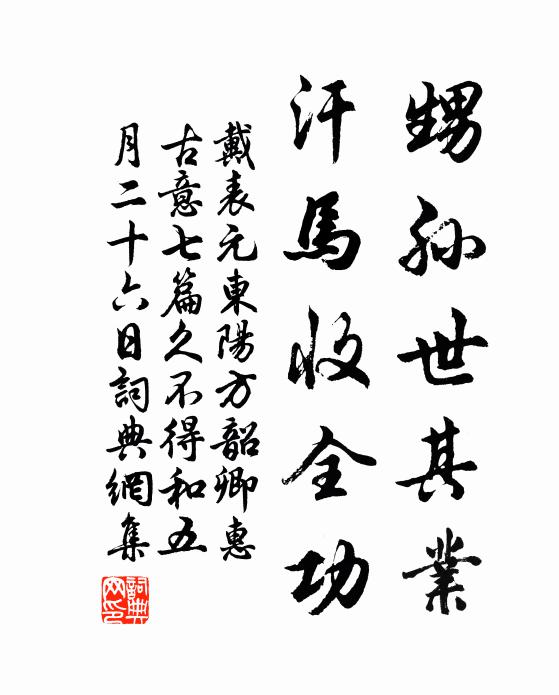 甥孫世其業
汗馬收全功
戴表元東陽方韶卿惠
古意七篇久不得和五
月二十六日詞典網集
詞典
网印